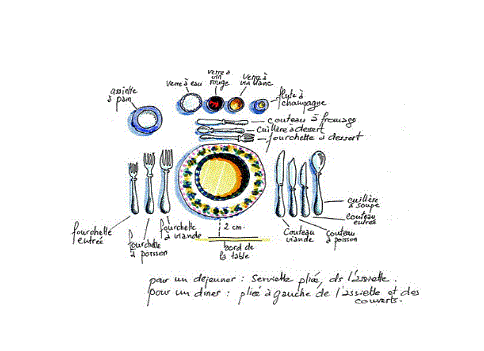 verre à eau
verre à
vin
rouge
verre à
vin blanc
flute à
champagne
assiette
à pain
couteau à fromage
cuillère à dessert
fourchette à dessert
fourchette
entrée
fourchette
à poisson
fourchette
à viande
2 cm
bord de
la table
Couteau
viande
couteau
à poisson
couteau
entrée
cuillère
à soupe
pour un déjeuner : Serviette pliée, ds l'assiette.
pour un diner : pliée à gauche de l'assiette et des
couverts.